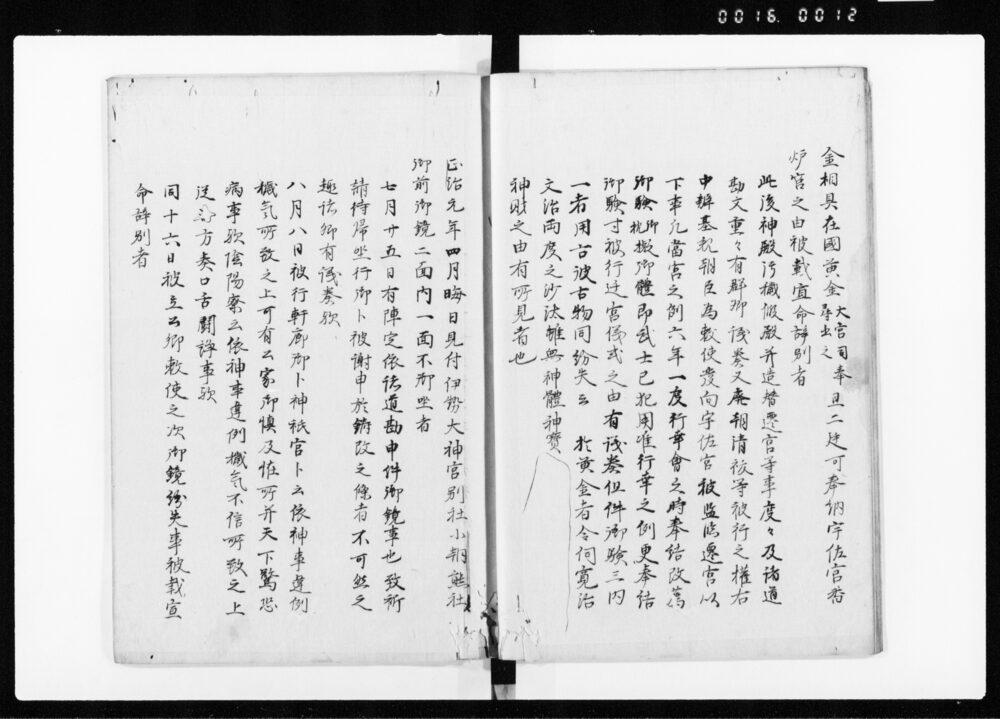 0016 0012
金相具在國黄金大宮司奉 尋出之 且二廷可奉納宇佐宮香
炉宮之由被載宣命辞別者
此後神殿汚穢假殿并造替遷宮等事度々及諸道
勘文重々有群卿議奏又廃朝清祓等被行之權右
中辨基親朝臣為勅使發向宇佐宮被監臨遷宮以
下事凡當宮之例六年一度行幸會之時奉結改薦
御驗 御躰御體即武士已犯用准行幸之例更奉結
御驗可被行迁宮儀式之由有議奏但件御驗三内
一者用古彼古物同紛失云 於黄金者今伺寛治
文治両度之沙汰雖無神體神寳
神財之由有所見者也
正治元年四月晦日見付伊勢大神宮別社小朝熊社
御前御鏡二面内一面不御坐者
七月廿五日有陣定依諸道勘申件御鏡事也致祈
請待帰坐行御卜被謝申於鋳改之條者不可然之
趣諸卿有議奏歟
八月八日被行軒廊御卜神祇官卜云依神事違例
穢気所致之上可有公家御慎及怪所并天下驚恐
病事歟陰陽寮云依神事違例穢気不信所致之上
従 方奏口舌闘諍事歟
同十六日被立公卿勅使之次御鏡紛失事被載宣
命辞別者